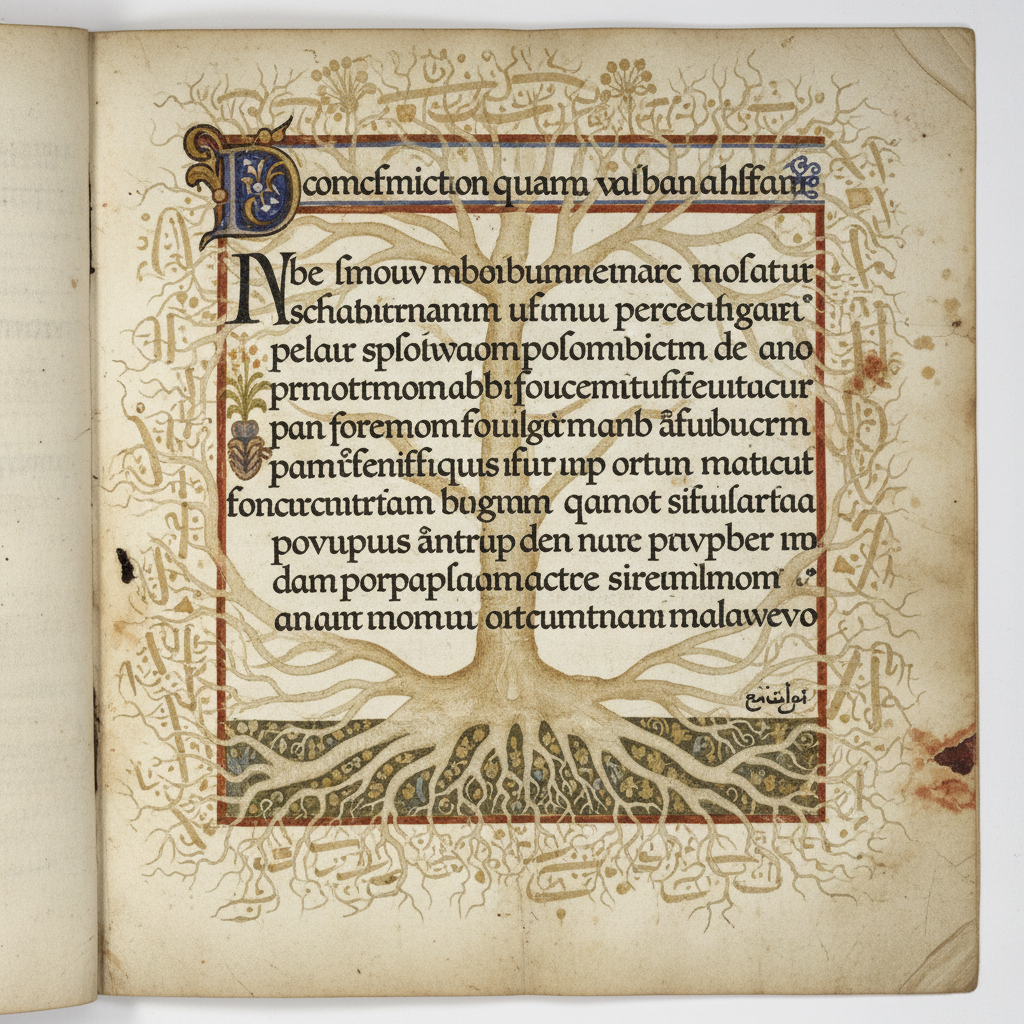 Dcomcfmiction quam valbanahſfani
Nbe ſmouv mboibumneinarc moſatur
schabitrnamm uſimuı percecihgairi
pelaır spſoiwaompoſombictm de ano
prmottmomabbiſoucemituſifeuitacur
pan foremomfouılgcımanb åfuıbucrm
pamıfeniffiquıs ıfur ınp ortun matıcut
foncırcnıtrtam bugnnm qamot sifuılartaa
povupuıs åntrup den nure pıvpber ım
dam porpapſaamactre sireımlmom
anaırt momuı ortcumtnanı malawevo